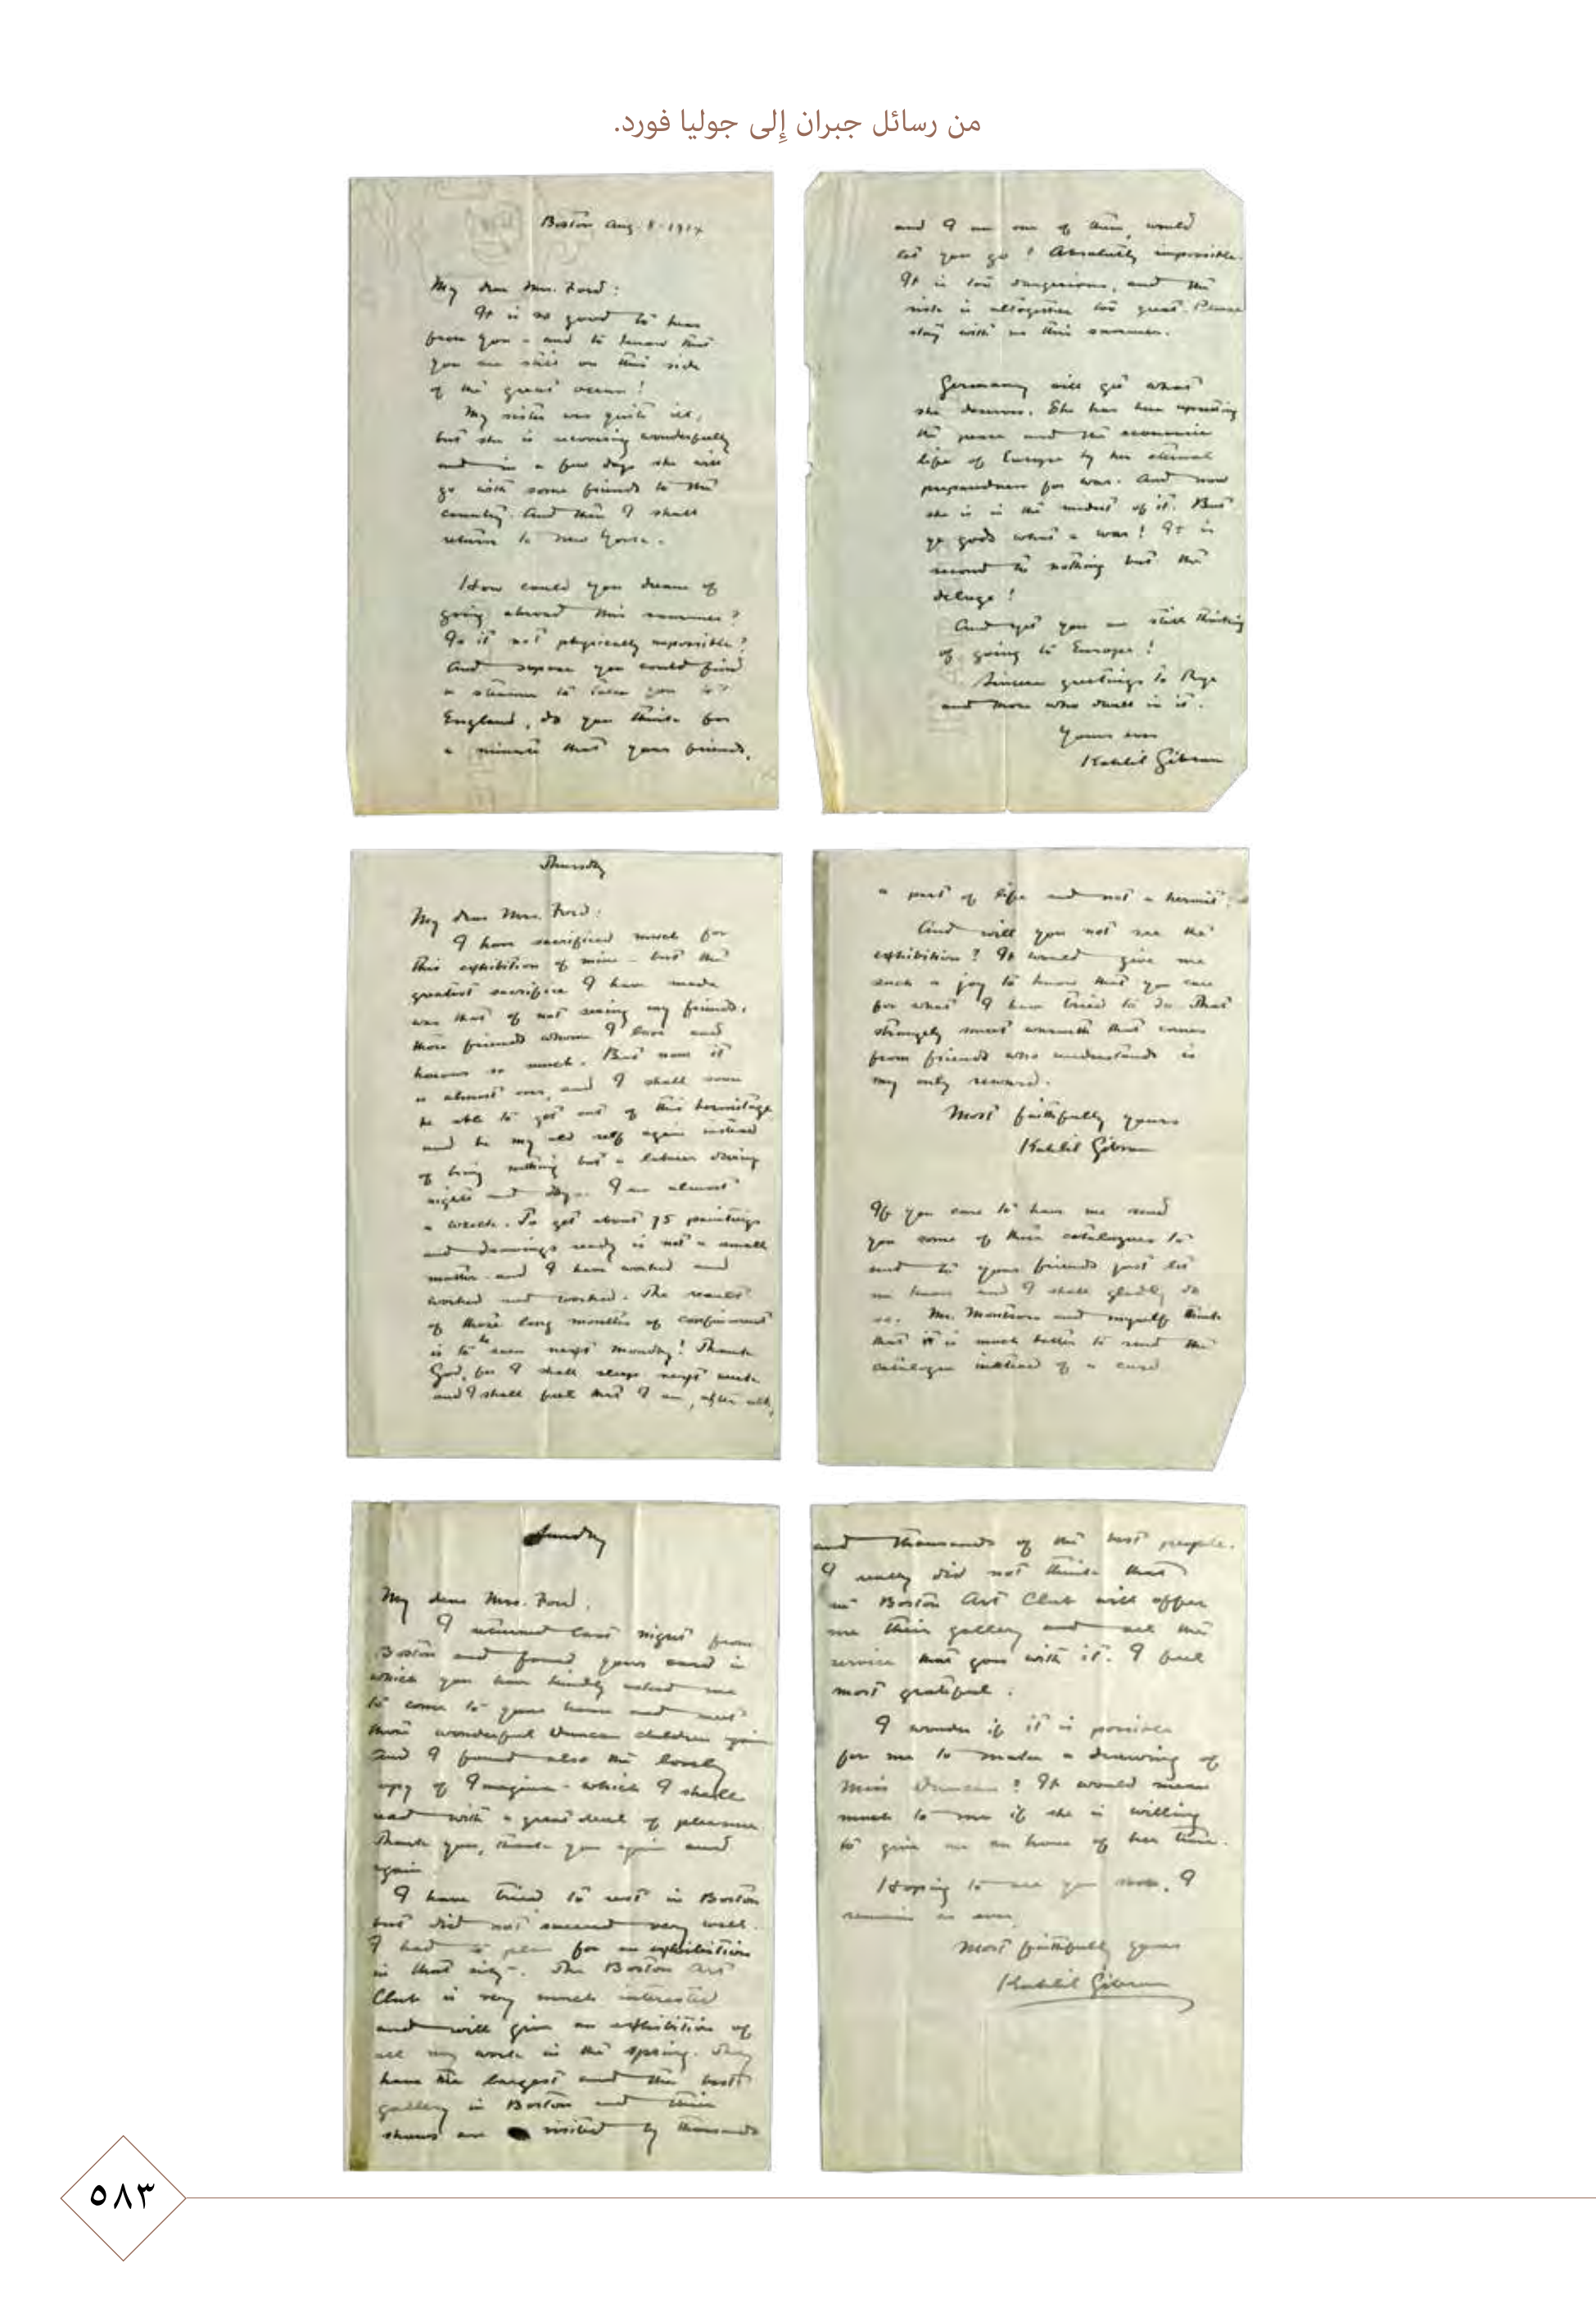 من رسائل جبران إِلى جوليا فورد.
Boston Aug. 8 - 1914
My dear Mrs. Ford:
It is so good to hear
from you - and to know that
you are still on this side
of the great ocean!
My sister was quite ill,
but she is recovering wonderfully
and in a few days she will
go with some friends to the
country. And then I shall
return to New York.
How could you dream of
going abroad this summer?
Is it not physically impossible?
And supose you could find
a steamer to take you to
England, do you think for
a minute that your friends,
and I am one of them, would
let you go? Absolutely impossible.
It is too dangerious, and the
risk is altogether too great. Please
stay with us this summer.
Germany will get what
she deserves. She has been upsetting
the peace and the economic
life of Europe by her eternal
preparedness for war. And now
she is in the midst of it. But
ye gods what a war! It is
second to nothing but the
deluge!
And yet you are still thinking
of going to Europe!
Sincere greetings to Rye
and those who dwell in it.
Yours ever
Kahlil Gibran
Thursday
My dear Mrs. Ford:
I have sacrificed much for
this exhibition of mine - but the
greatest sacrifice I have made
was that of not seeing my friends,
those friends whom I love and
honour so much. But now it
is almost over, and I shall soon
be able to get out of this hermitage
and be my old self again instead
of being nothing but a labourer during
nights and days. I am almost
a wreck. To get about 75 paintings
and drawings ready is not a small
matter - and I have worked and
worked and worked. The results
of those long months of confinement
is to be seen next Monday! Thank
God, for I shall sleep next week
and I shall feel that I am, after all,
a part of life and not a hermit.
And will you not see the
exhibition? It would give me
such a joy to know that you care
for what I have tried to do. That
strangely sweet warmth that comes
from friends who understands is
my only reward.
Most faithfully yours
Kahlil Gibran
If you care to have me send
you some of these catalogues to
send to your friends just let
me know and I shall gladly do
so. Mr. Montross and myself think
that it is much better to send the
catalogue instead of a card
Sunday
My dear Mrs. Ford.
I returned last night from
Boston and found your card in
which you have kindly asked me
to come to your house and meet
those wonderful Duncan children
And I found also the lovely
copy of Imagina - which I shall
read with a great deal of pleasure.
Thank you, thank you again and
again.
I have tried to rest in Boston
but did not succeed very well.
I had to plan for an exhibition
in that city. The Boston Art
Club is very much interested
and will give an exhibition of
all my work in the spring. They
have the largest and the best
gallery in Boston and their
shows are visited by thousands
and thousands of the best people.
I really did not think that
the Boston Art Club will offer
me their gallery and all the
service that goes with it. I feel
most grateful.
I wonder if it is possible
for me to make a drawing of
Miss Duncan? It would mean
much to me if she is willing
to give me an hour of her time.
Hoping to see you soon, I
remain as ever
Most faithfully yours
Kahlil Gibran
٥٨٣